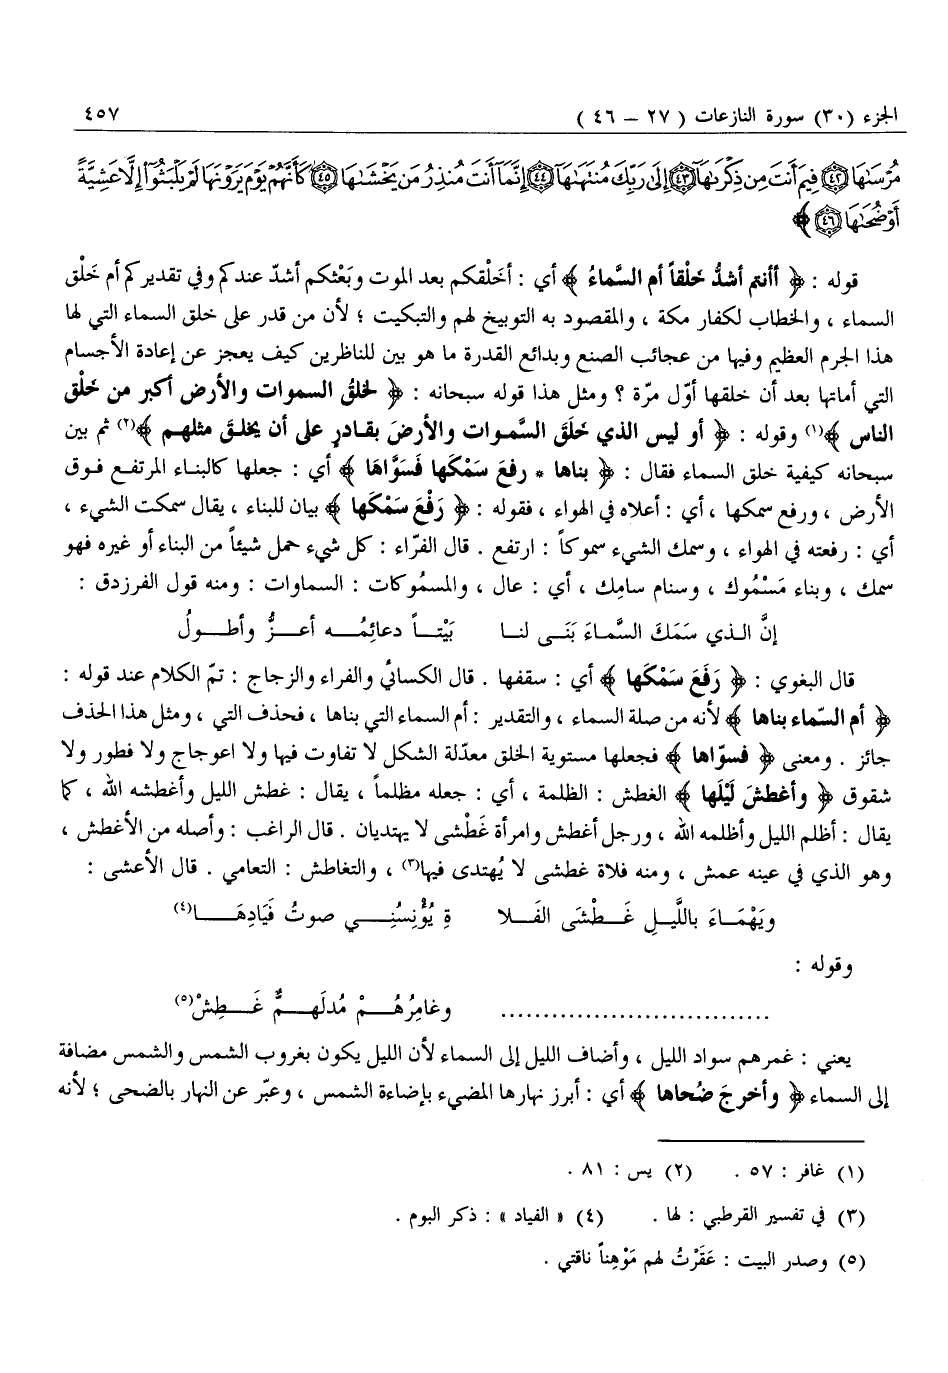 الجزء (٣٠) سورة النازعات ( ٢٧ – ٤٦ ) ٤٥٧
مُرْسَىٰهَا ﴿٤٢﴾ فِيمَ أَنتَ مِن ذِكْرَىٰهَآ ﴿٤٣﴾ إِلَىٰ رَبِّكَ مُنتَهَىٰهَآ ﴿٤٤﴾ إِنَّمَآ أَنتَ مُنذِرُ مَن يَخْشَىٰهَا ﴿٤٥﴾ كَأَنَّهُمْ يَوْمَ يَرَوْنَهَا لَمْ يَلْبَثُوٓا۟ إِلَّا عَشِيَّةً
أَوْ ضُحَىٰهَا ﴿٤٦﴾ ﴾
قوله : ﴿ أأنتم أشدُّ خَلْقاً أم السَّماءُ ﴾ أي : أخَلْقكم بعد الموت وبَعْثكم أشدّ عندكم وفي تقديركم أم خَلْق
السماء ، والخطاب لكفار مكة ، والمقصود به التوبيخ لهم والتبكيت ؛ لأن من قدر على خلق السماء التي لها
هذا الجرم العظيم وفيها من عجائب الصنع وبدائع القدرة ما هو بين للناظرين كيف يعجز عن إعادة الأجسام
التي أماتها بعد أن خلقها أوّل مرّة ؟ ومثل هذا قوله سبحانه : ﴿ لخلقُ السموات والأرض أكبر من خَلْق
الناس ﴾(١) وقوله : ﴿ أو ليس الذي خَلَقَ السَّموات والأرضَ بقادرٍ على أن يخلقَ مثلهم ﴾(٢) ثم بين
سبحانه كيفية خلق السماء فقال : ﴿ بناها * رفعَ سَمْكَها فَسَوَّاها ﴾ أي : جعلها كالبناء المرتفع فوق
الأرض ، ورفع سمكها ، أي : أعلاه في الهواء ، فقوله : ﴿ رَفْعَ سَمْكَها ﴾ بيان للبناء ، يقال سمكت الشيء ،
أي : رفعته في الهواء ، وسمك الشيء سموكاً : ارتفع . قال الفرّاء : كل شيء حمل شيئاً من البناء أو غيره فهو
سمك ، وبناء مَسْمُوك ، وسنام سامِك ، أي : عال ، والمسمُوكات : السماوات : ومنه قول الفرزدق :
إنَّ الذي سَمَكَ السَّماءَ بَنَى لنا بَيْتاً دعائمُه أعزُّ وأطولُ
قال البغوي : ﴿ رَفَعَ سَمْكَها ﴾ أي : سقفها . قال الكسائي والفراء والزجاج : تمّ الكلام عند قوله :
﴿ أم السّماء بناها ﴾ لأنه من صلة السماء ، والتقدير : أم السماء التي بناها ، فحذف التي ، ومثل هذا الحذف
جائز . ومعنى ﴿ فسوّاها ﴾ فجعلها مستوية الخلق معدّلة الشكل لا تفاوت فيها ولا اعوجاج ولا فطور ولا
شقوق ﴿ وأغطشَ لَيْلَها ﴾ الغطش : الظلمة ، أي : جعله مظلماً ، يقال : غطش الليل وأغطشه الله ، كما
يقال : أظلم الليل وأظلمه الله ، ورجل أغطش وامرأة غَطْشى لا يهتديان . قال الراغب : وأصله من الأغطش ،
وهو الذي في عينه عمش ، ومنه فلاة غطشى لا يُهتدى فيها(٣) ، والتغاطش : التعامي . قال الأعشى :
ويَهْمَاءَ باللَّيلِ غَطْشَى الفَلا ةِ يُؤْنِسُنِي صوتُ فَيَادِهَا(٤)
وقوله :
............................... وغامِرُهُمْ مُدلَهِمٌّ غَطِشْ(٥)
يعني : غمرهم سواد الليل ، وأضاف الليل إلى السماء لأن الليل يكون بغروب الشمس والشمس مضافة
إلى السماء ﴿ وأخرجَ ضُحاها ﴾ أي : أبرز نهارها المضيء بإضاءة الشمس ، وعبّر عن النهار بالضحى ؛ لأنه
(١) غافر : ٥٧ . (٢) يس : ٨١ .
(٣) في تفسير القرطبي : لها . (٤) « الفياد » : ذكر البوم .
(٥) وصدر البيت : عَقَرْتُ لهم مَوْهِناً ناقتي .